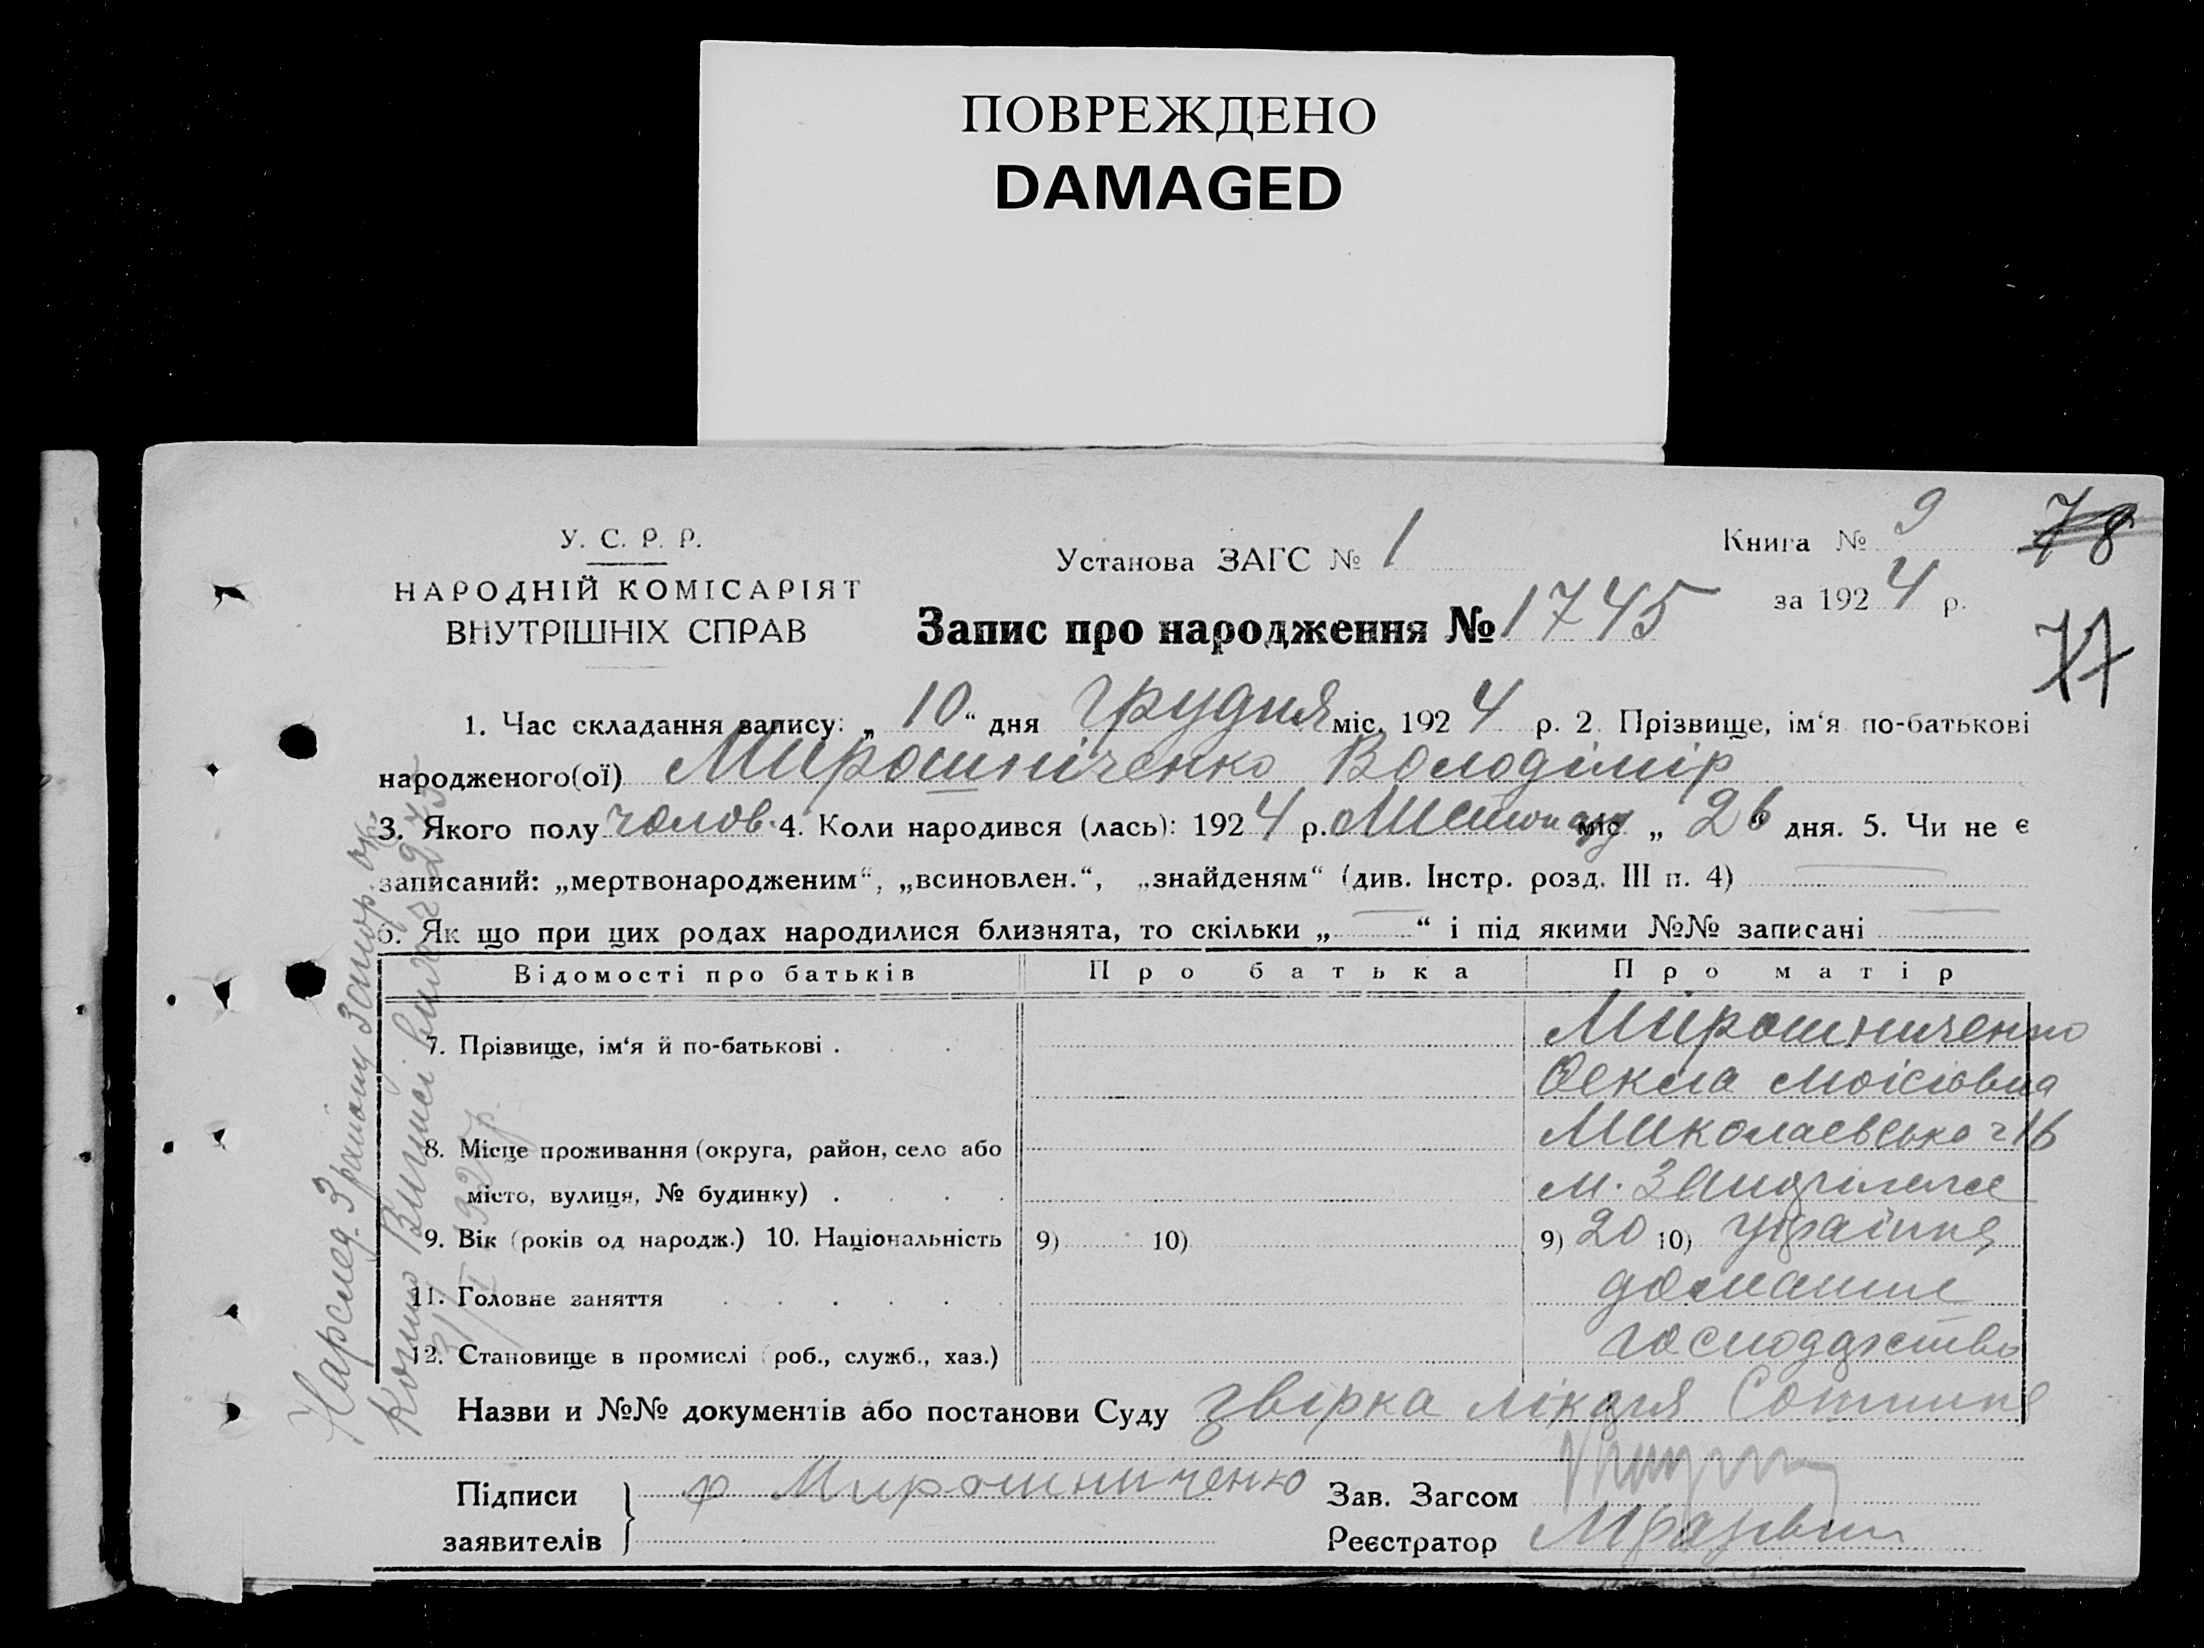 ПОВРЕЖДЕНО
DAMAGED
У. С. Р. Р.
НАРОДНІЙ КОМІСАРІЯТ
ВНУТРІШНІХ СПРАВ
Установа ЗАГС № 1
Книга № 9
78
за 1924 р.
77
Запис про народження № 1745
1. Час складання запису: „ 10 “ дня грудня міс. 1924 р. 2. Прізвище, ім‘я по-батькові
народженого(ої) Мирошніченко Володімір
3. Якого полу чолов. 4. Коли народився (лась): 1924 р. Листопаду міс. „ 26 “ дня. 5. Чи не є
записаний: „мертвонародженим“, „всиновлен.“, „знайденям“ (див. Інстр. розд. III п. 4) —
6. Як що при цих родах народилися близнята, то скільки „ — “ і під якими №№ записані —
Відомості про батьків Про батька Про матір
7. Прізвище, ім‘я й по-батькові . Мирошниченко
Векла Моісіовна
8. Місце проживання (округа, район, село або Миколаевсько 216
місто, вулиця, № будинку) . м.
9. Вік (років од народж.) 10. Національність 9) 10) 9) 20 10) Україн
11. Головне заняття домашнє
12. Становище в промислі (роб., служб., хаз.) господарство
Назви и №№ документів або постанови Суду звірка лікаря
Підписи заявителів Ф Мирошниченко
Зав. Загсом
Реєстратор
Нарслед. 3 району Запор. окр.
Копию Виписі видано